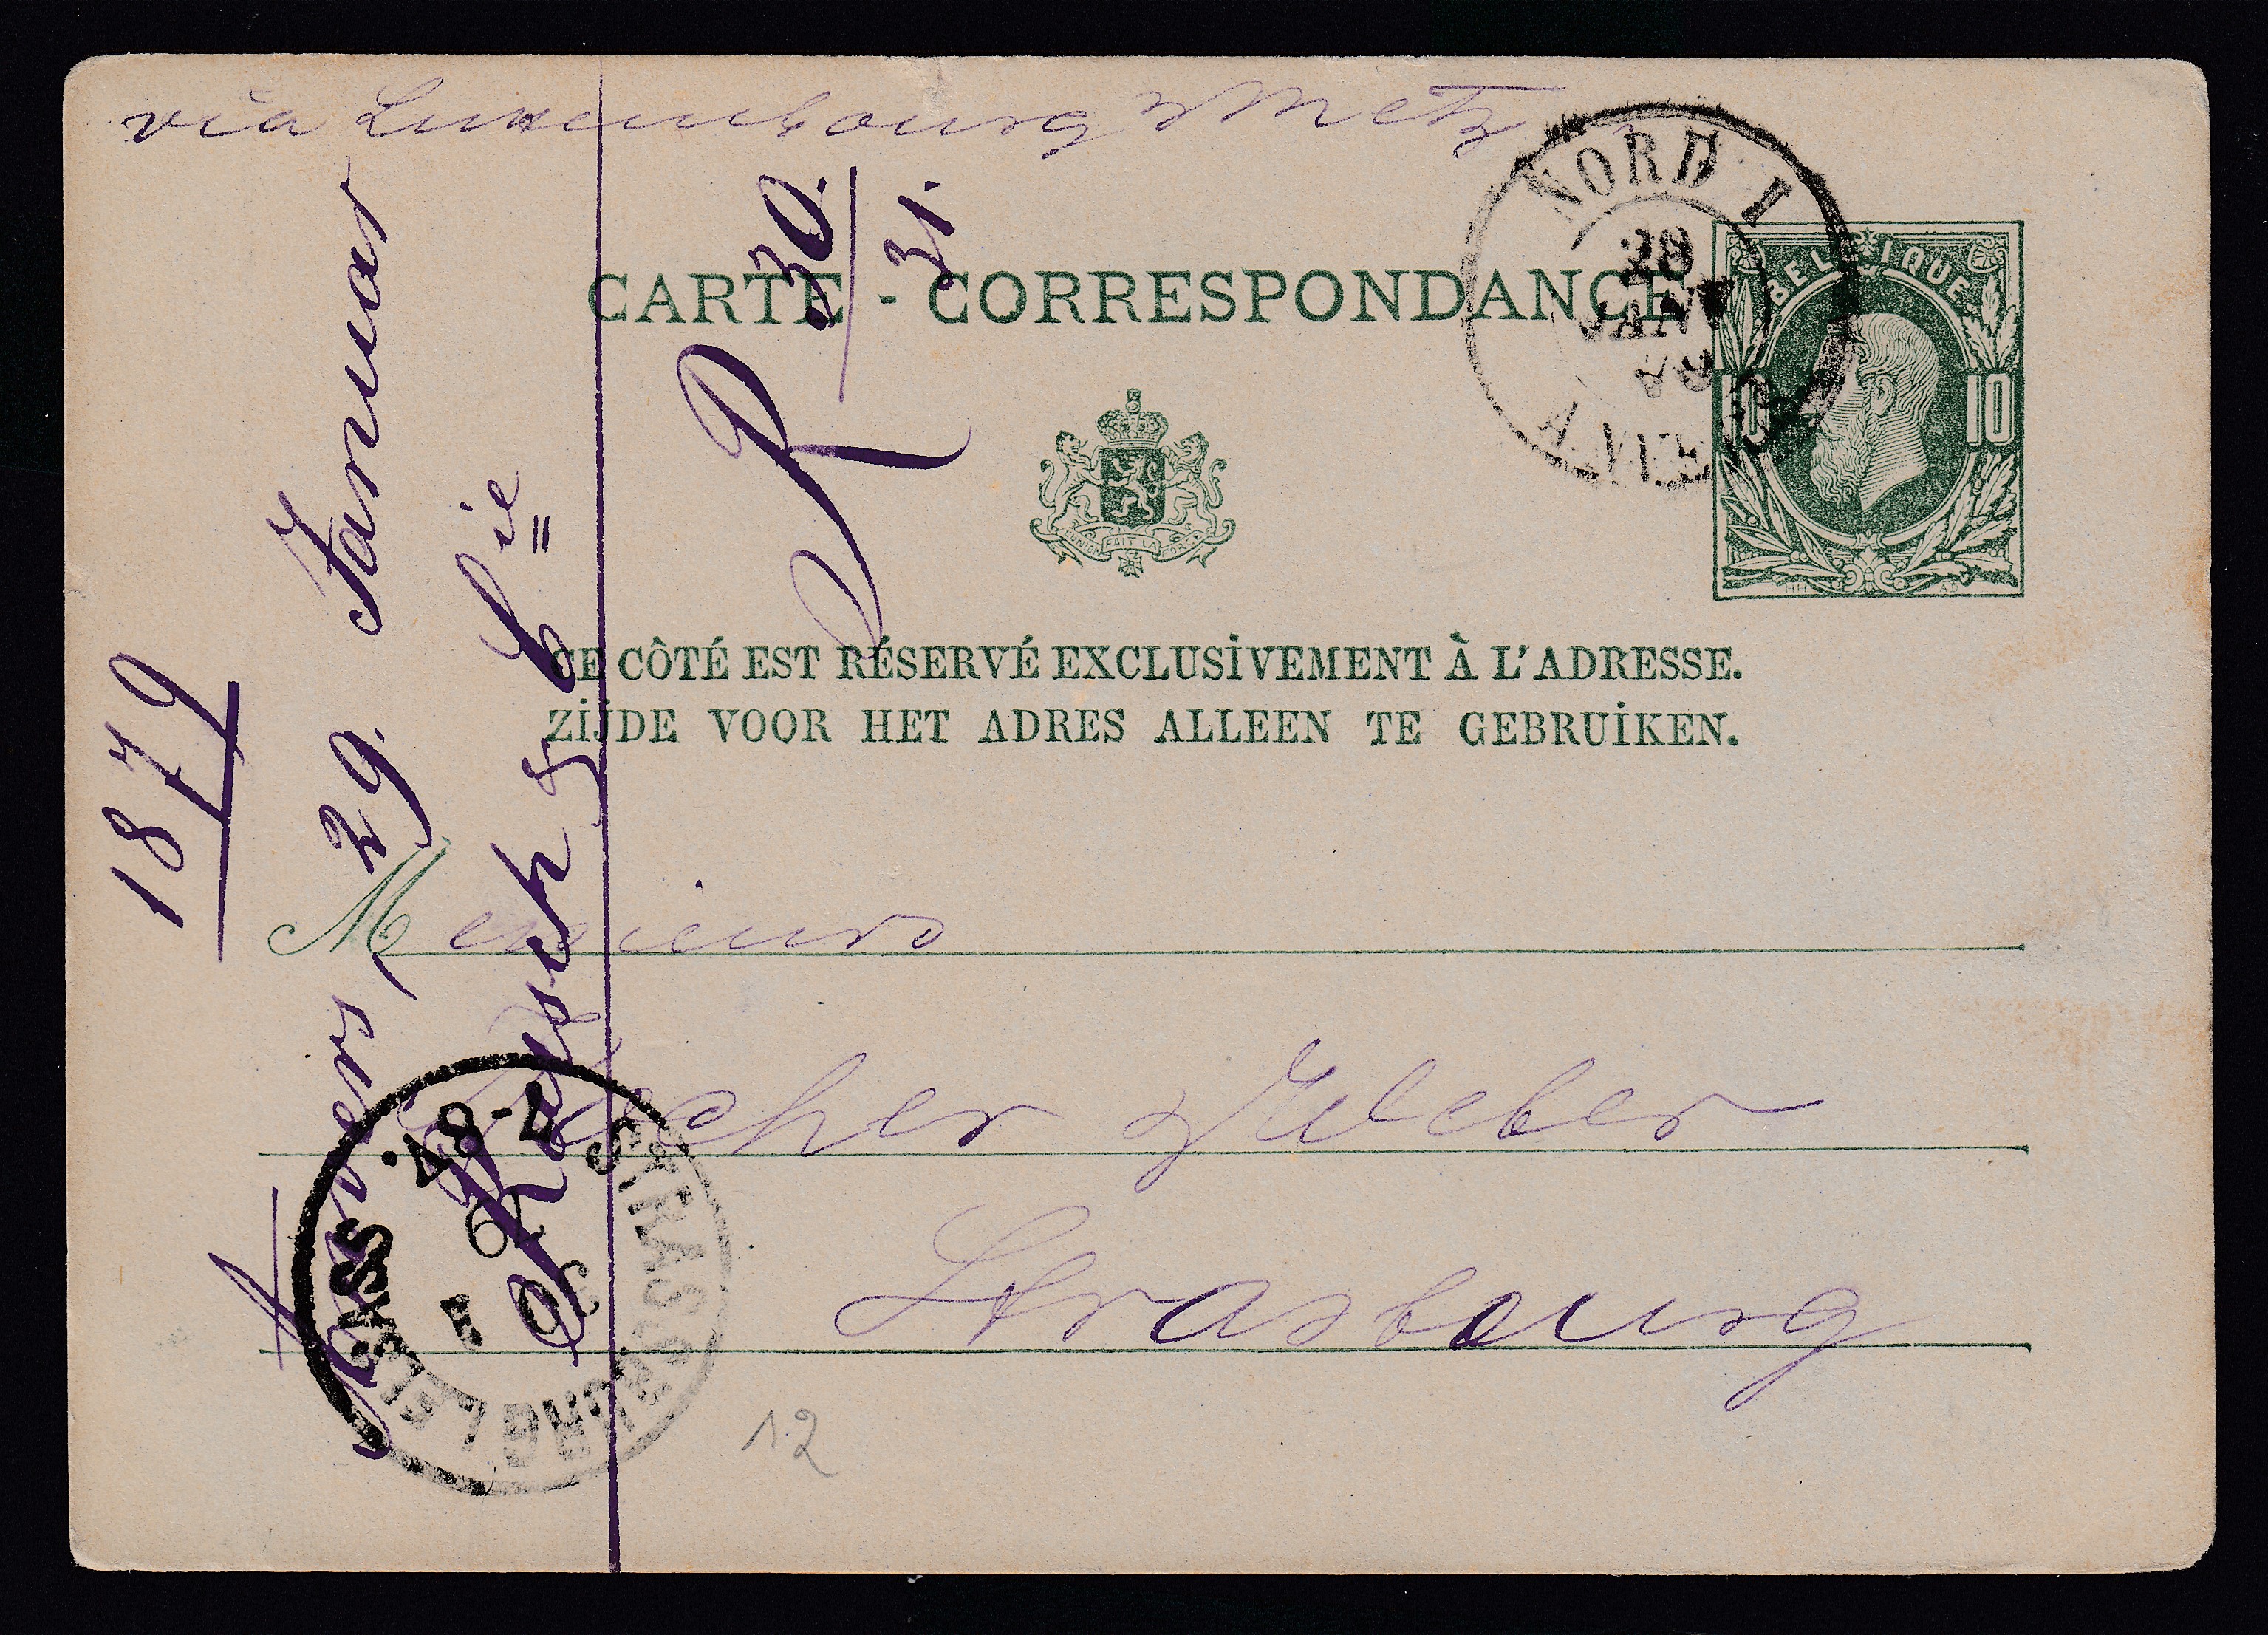 via Luxembourg & Metz
NORD I
28
JANV
BELGIQUE
10 10
CARTE - CORRESPONDANCE
L'UNION FAIT LA FORCE
CE CÔTÉ EST RÉSERVÉ EXCLUSIVEMENT À L'ADRESSE.
ZIJDE VOOR HET ADRES ALLEEN TE GEBRUIKEN.
Messieurs
& Weber
Strasbourg
1879
Anvers, 29. Januar
& Cie
R 30.
31.
STRASSBURG I. ELSASS
30 1
79
7-8V.
12